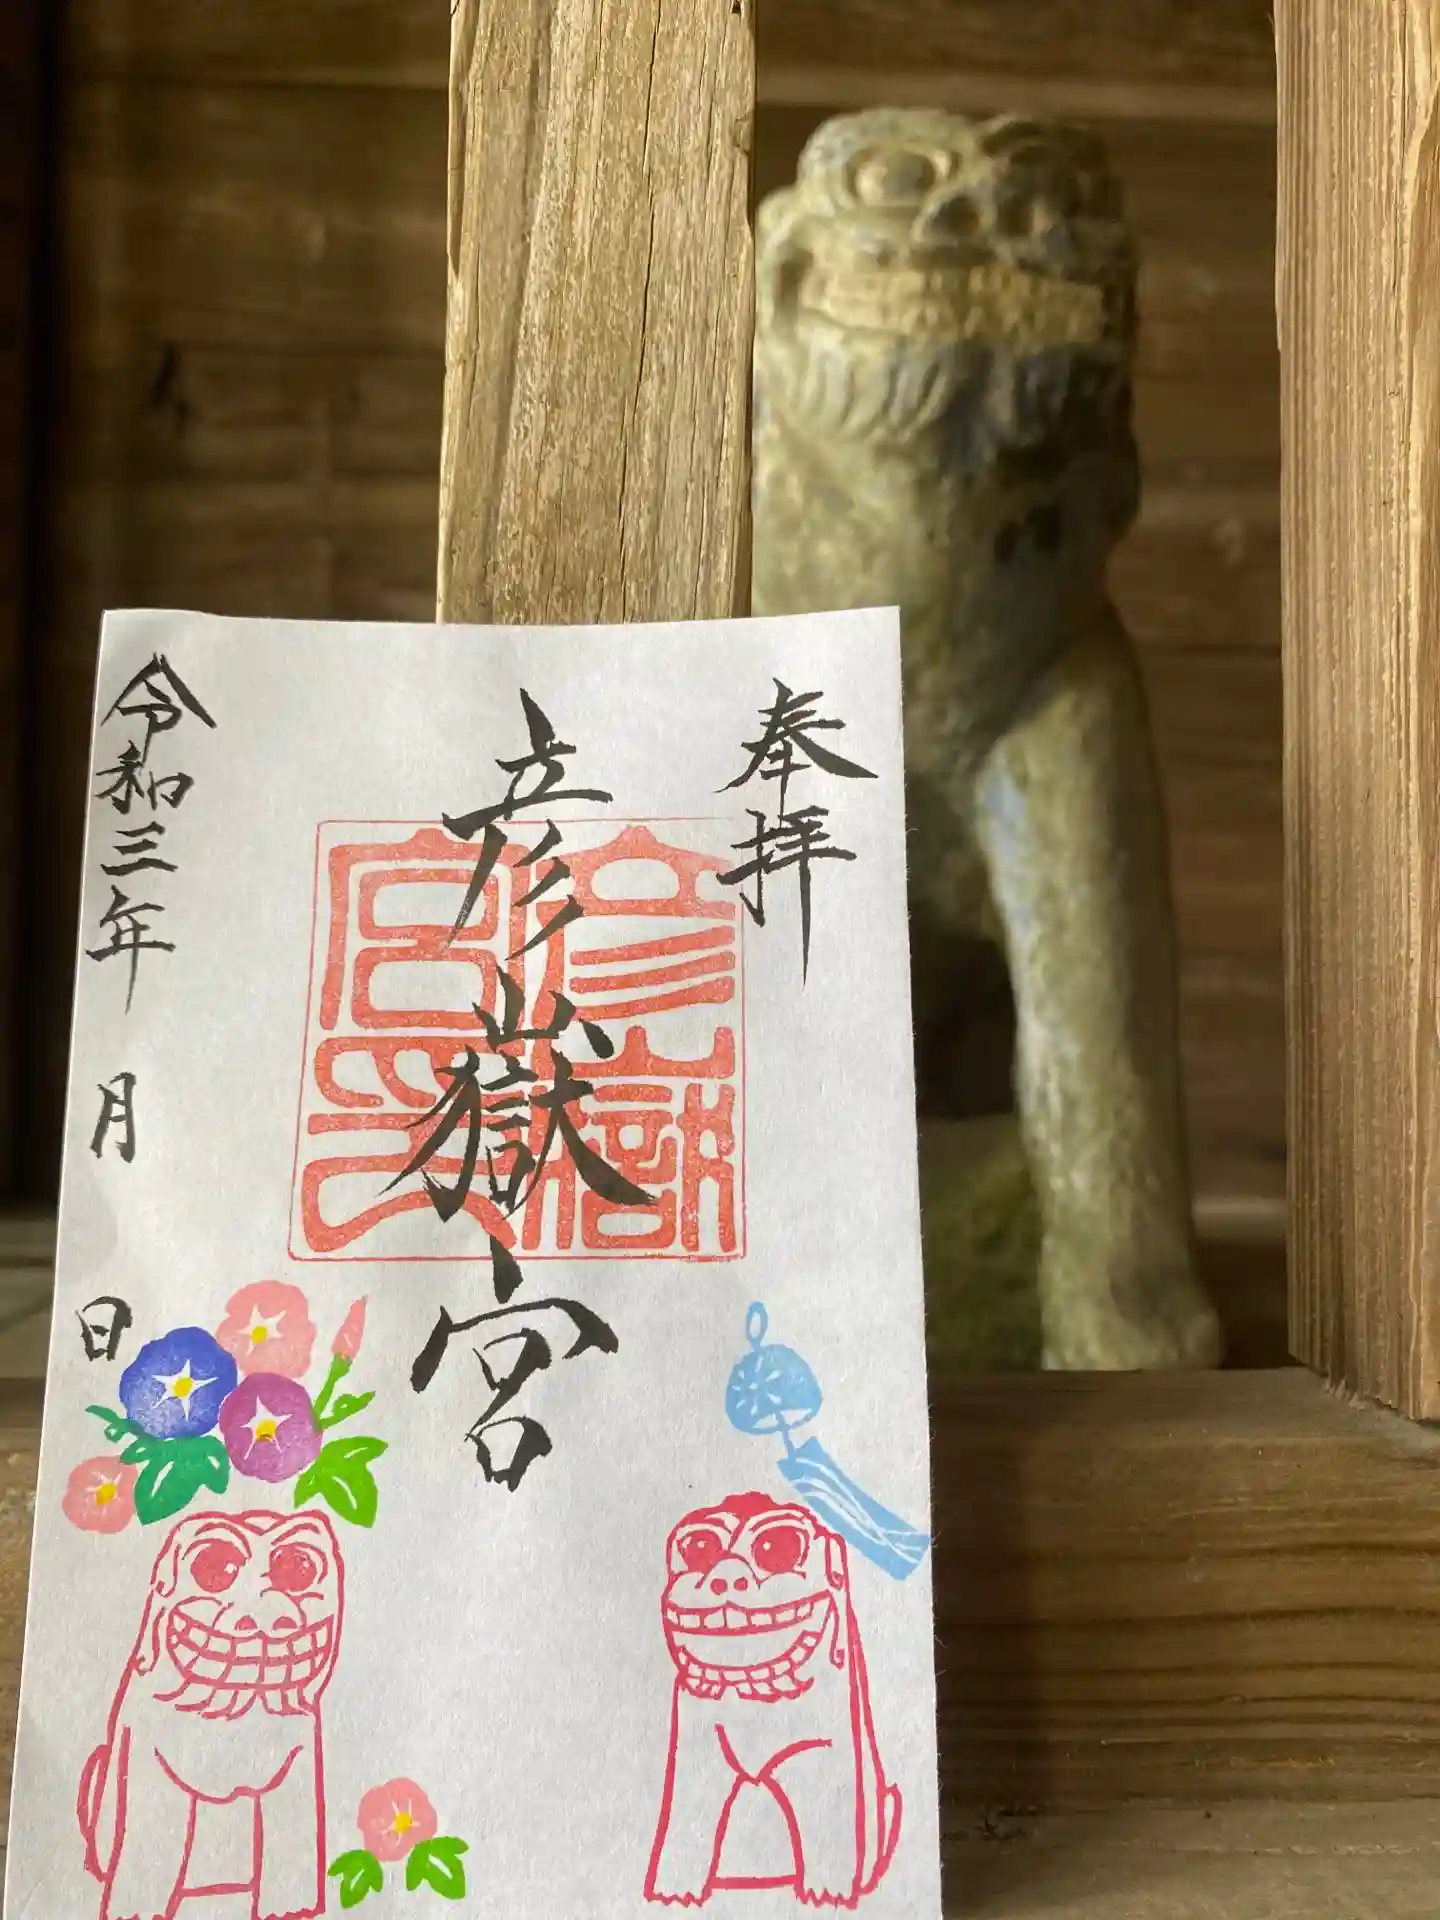 奉拝
彦山嶽宮
彦嶽宮印
令和三年 月 日